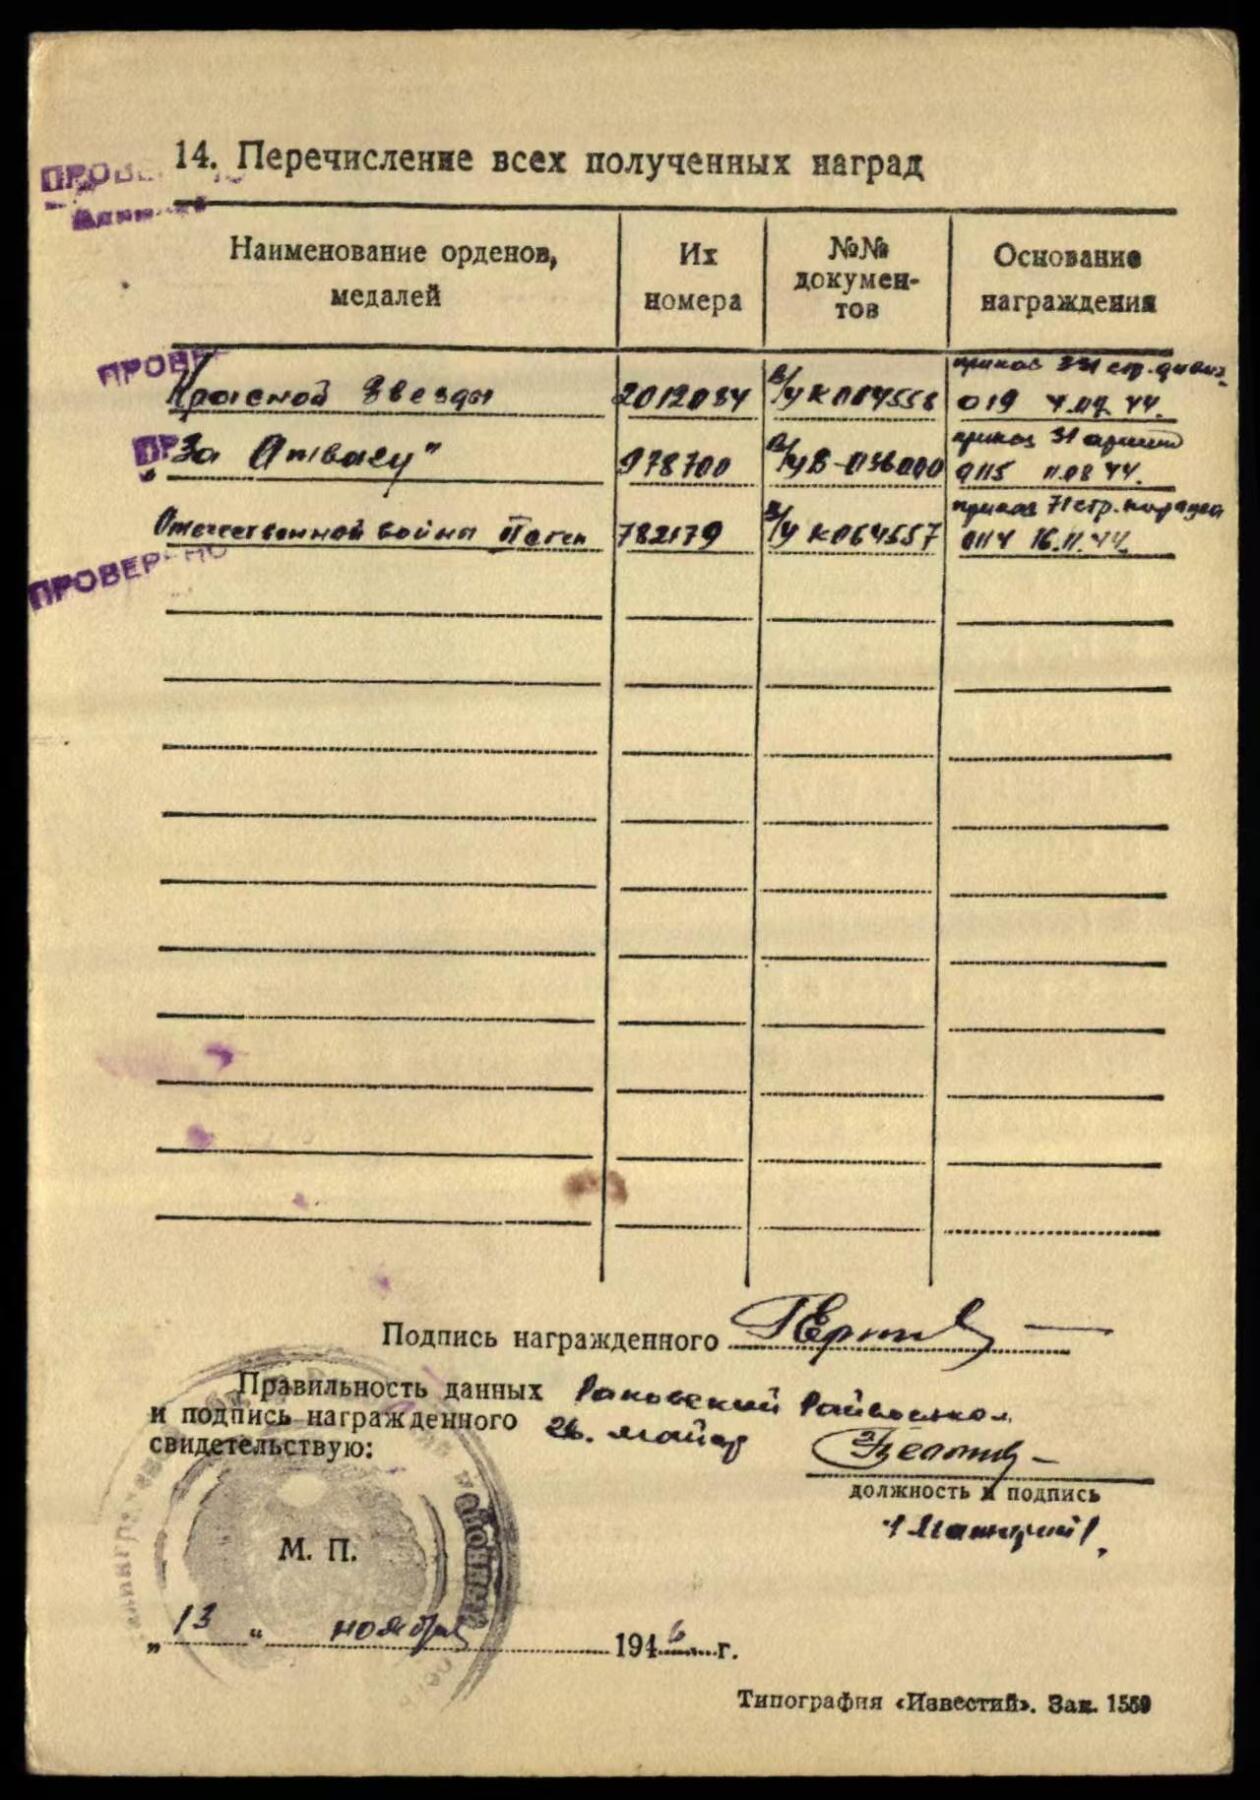 14. Перечисление всех полученных наград
Наименование орденов, медалей
Их номера
№№ докумен-
тов
Основание награждения
ПРОВЕ
Красной Звезды 2012084 В/у К 064558 приказ 331 стр. дивиз.
019 4.07.44.
„За Отвагу" 978700 В/у В-036000 приказ 31 армии
0115 11.08.44.
Отечественной войны II степ 782179 В/у К064557 приказ 71 стр. корпуса
0114 16.11.44.
ПРОВЕРЕНО
Подпись награжденного
Правильность данных
и подпись награжденного
свидетельствую:
Раковский Райвоенком
гв. майор
должность и подпись
М. П.
„ 13 “ ноября 1946 г.
Типография «Известий». Зак. 1559